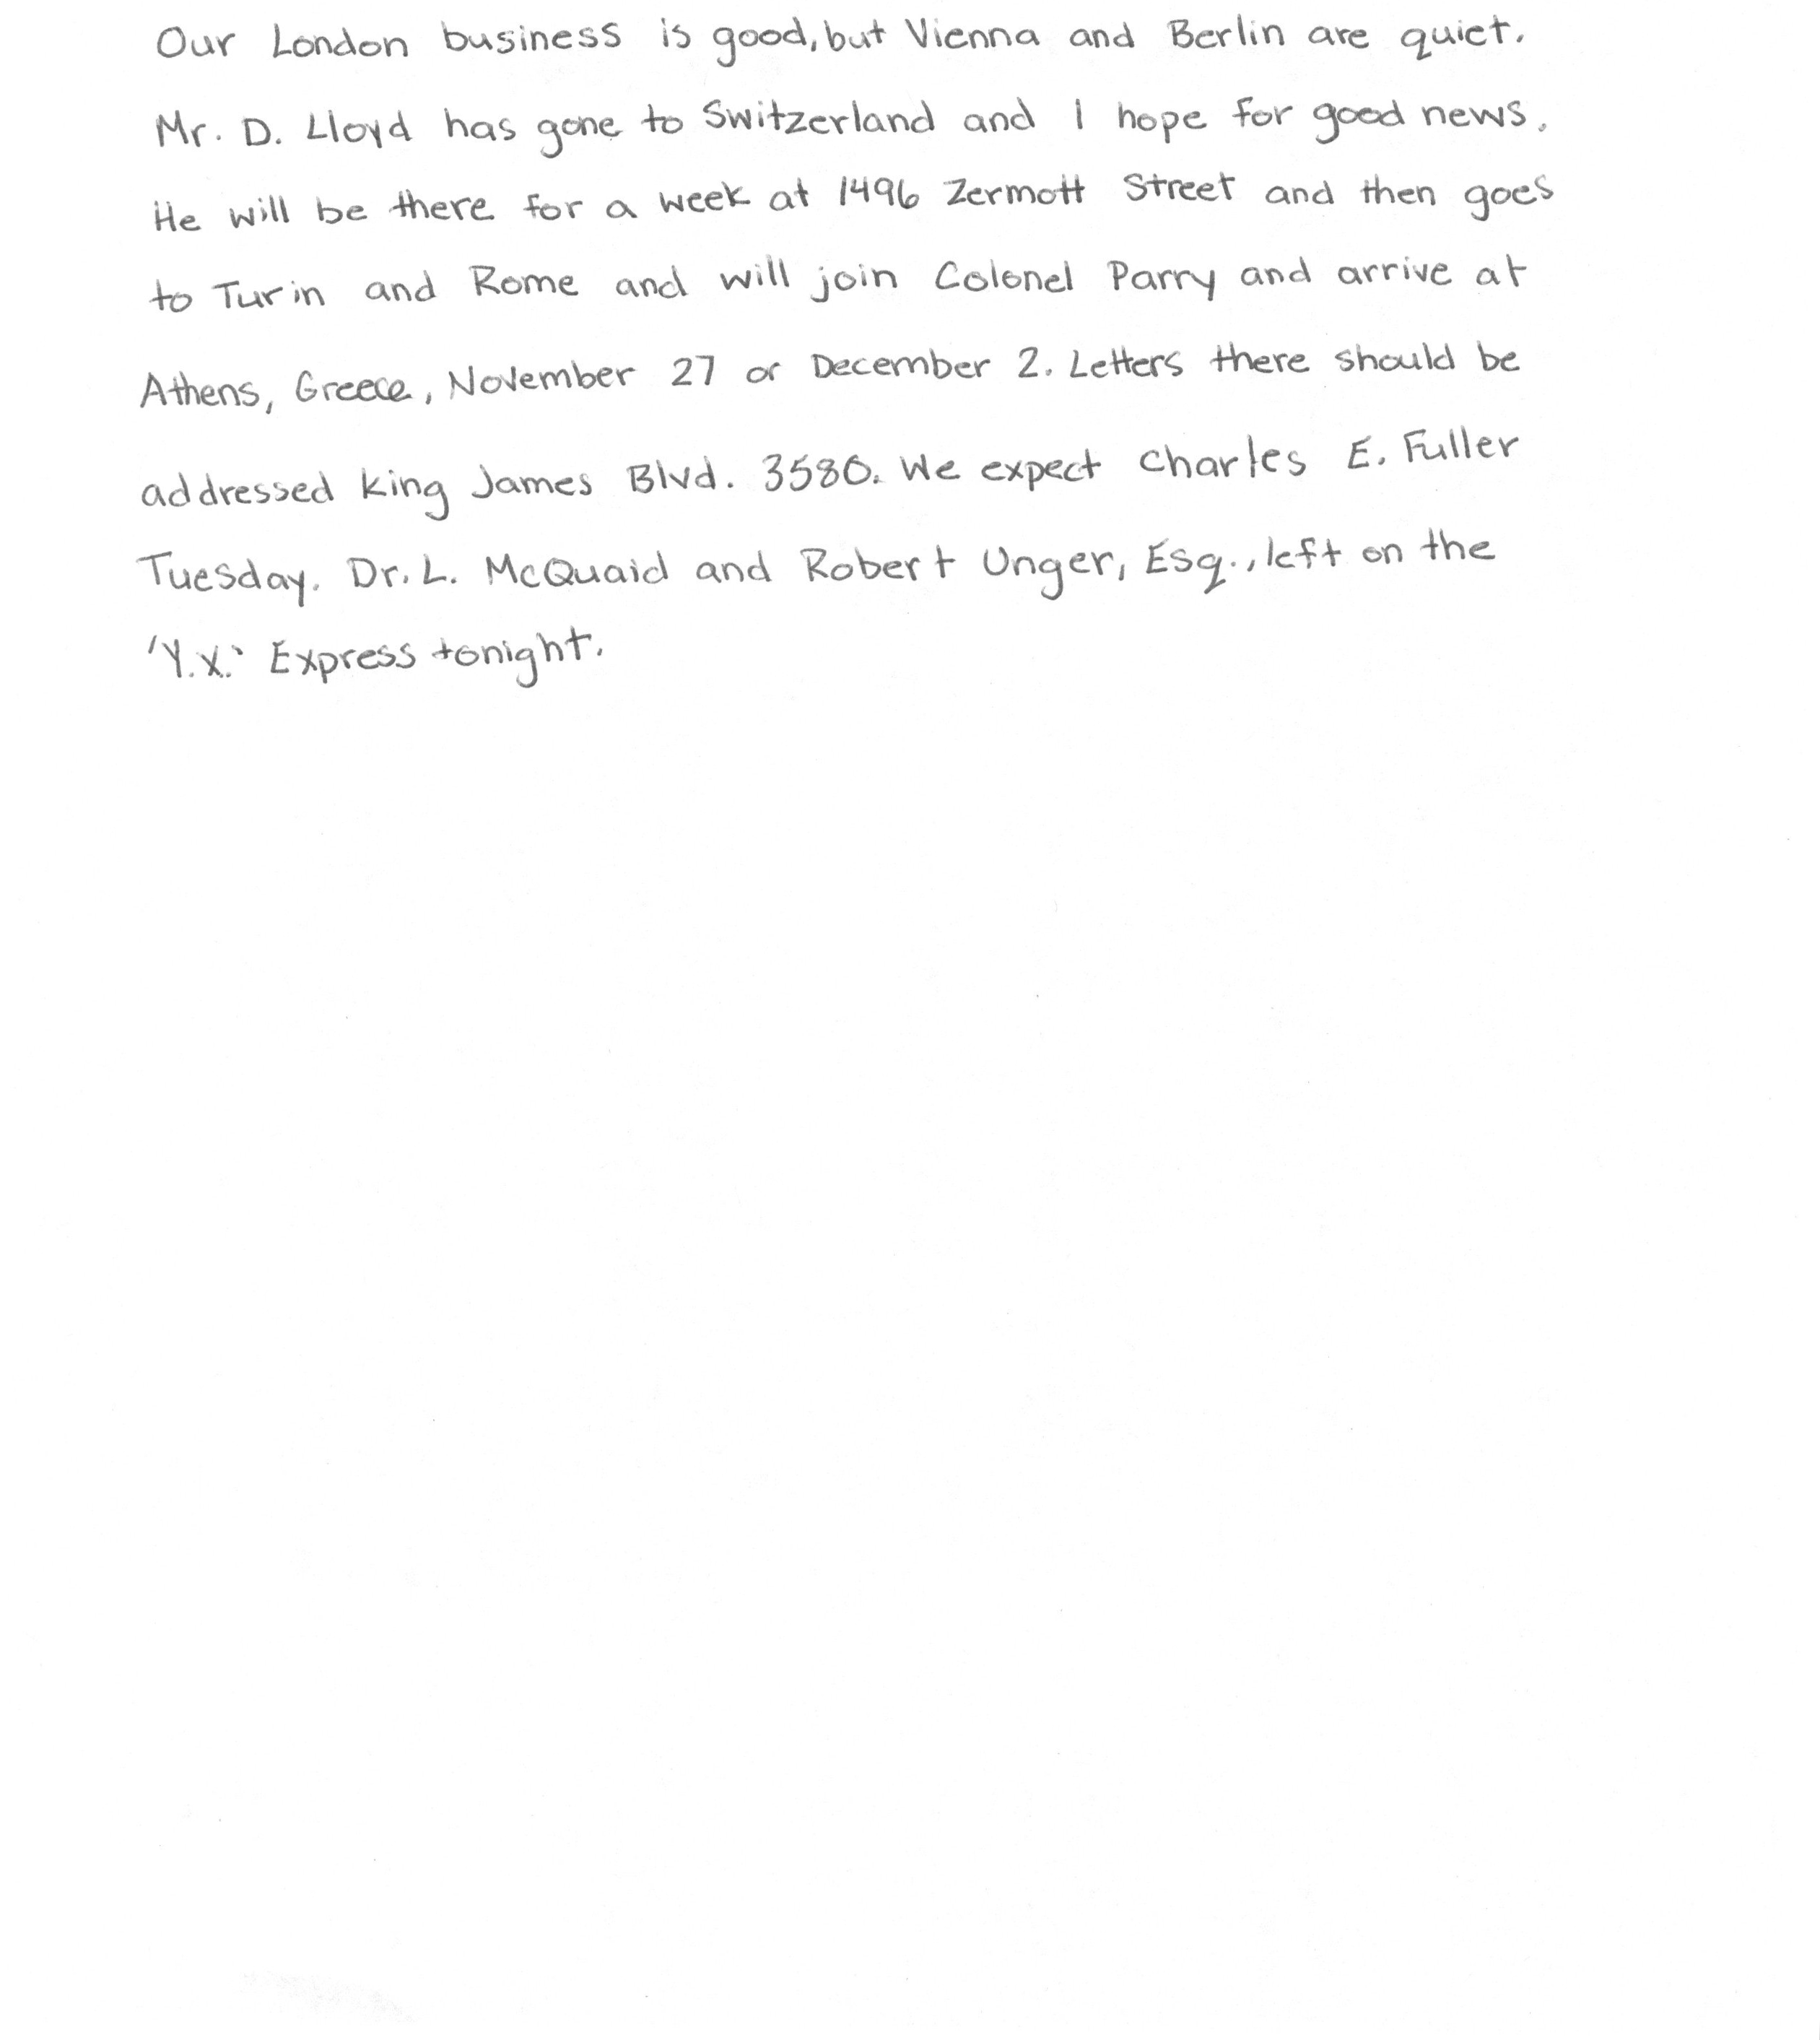 Our London business is good, but Vienna and Berlin are quiet.
Mr. D. Lloyd has gone to Switzerland and I hope for good news.
He will be there for a week at 1496 Zermott Street and then goes
to Turin and Rome and will join Colonel Parry and arrive at
Athens, Greece, November 27 or December 2. Letters there should be
addressed King James Blvd. 3580. We expect Charles E. Fuller
Tuesday. Dr. L. McQuaid and Robert Unger, Esq., left on the
'Y.X.' Express tonight.